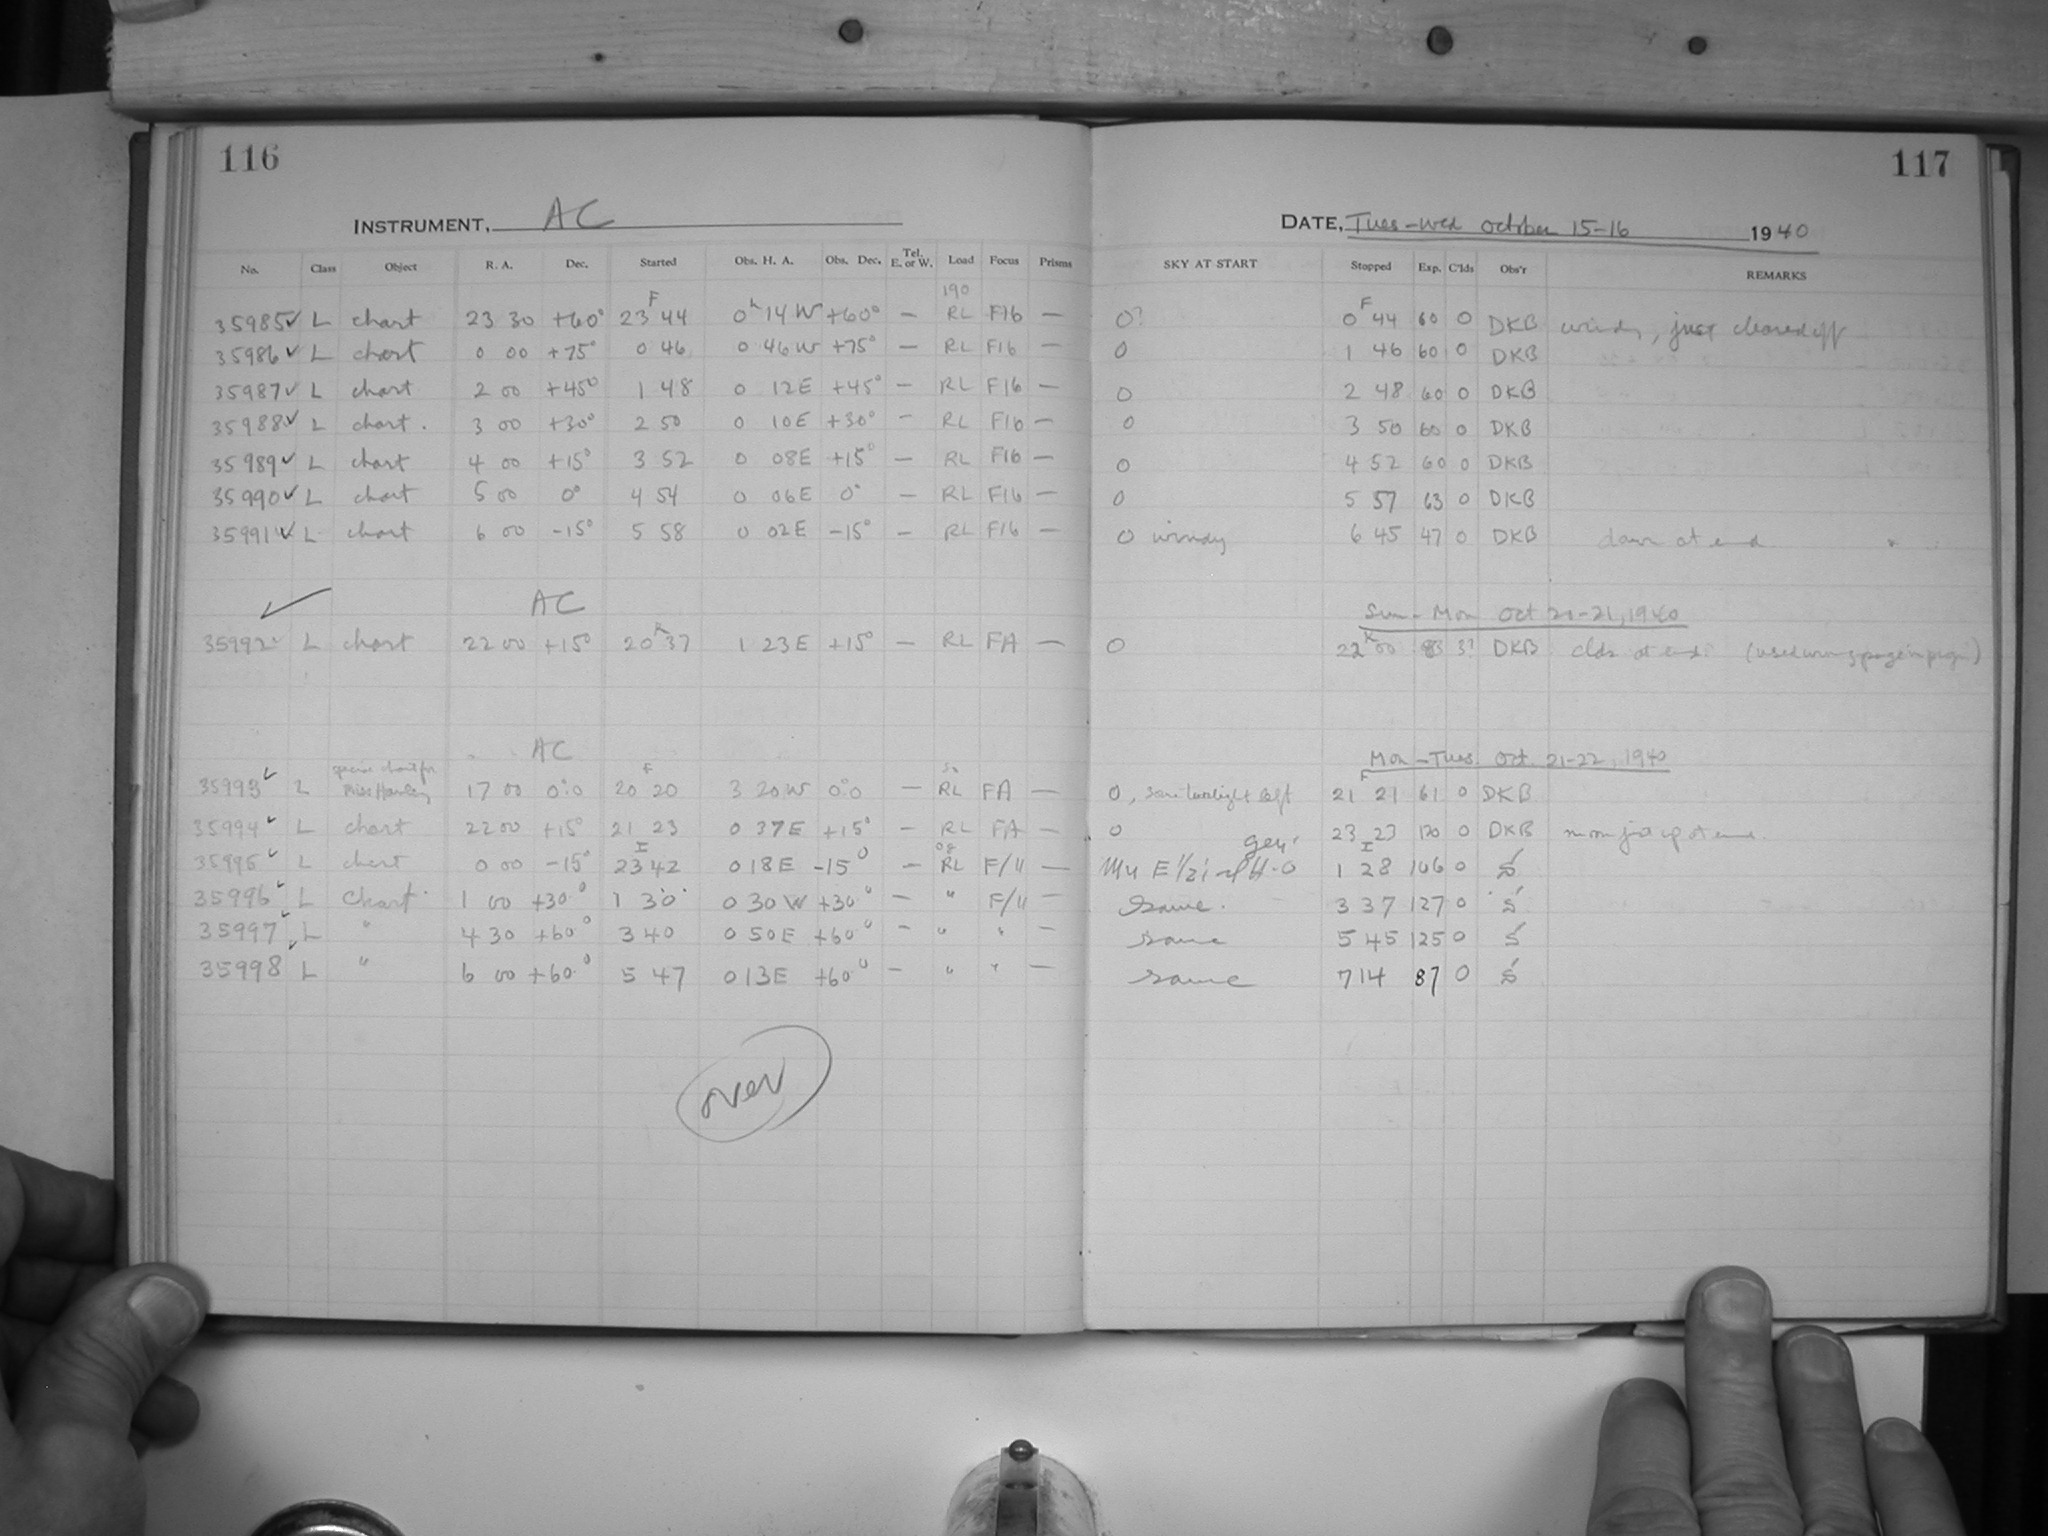 116
INSTRUMENT, AC
No. Class Object R. A. Dec. Started Obs. H. A. Obs. Dec. Tel. E. or W. Load Focus Prisms
190
35985✓ L chart 23 30 +60° 23 F 44 0h 14 W +60° — RL F16 —
35986✓ L chart 0 00 +75° 0 46 0 46 W +75° — RL F16 —
35987✓ L chart 2 00 +45° 1 48 0 12E +45° — RL F16 —
35988✓ L chart. 3 00 +30° 2 50 0 10E +30° — RL F16 —
35989✓ L chart 4 00 +15° 3 52 0 08E +15° — RL F16 —
35990✓ L chart 5 00 0° 4 54 0 06E 0° — RL F16 —
35991✓ L chart 6 00 -15° 5 58 0 02E -15° — RL F16 —
AC
35992✓ L chart 22 00 +15° 20 37 1 23 E +15° — RL FA —
AC
special chart for
35993✓ L Miss 17 00 0°.0 20 F 20 3 20 W 0°.0 — RL FA —
35994✓ L chart 22 00 +15° 21 23 0 37E +15° — RL FA —
35995✓ L chart 0 00 -15° 23 I 42 0 18 E -15° — RL F/11 —
35996✓ L Chart. 1 00 +30° 1 30 0 30 W +30° — " F/11 —
35997✓ L " 4 30 +60° 3 40 0 50 E +60° — " " —
35998✓ L " 6 00 +60° 5 47 0 13E +60° — " " —
over
117
DATE, Tues-Wed October 15-16 1940
SKY AT START Stopped Exp. C'lds Obs'r REMARKS
0? 0 F 44 60 0 DKB windy, just cleared off
0 1 46 60 0 DKB
0 2 48 60 0 DKB
0 3 50 60 0 DKB
0 4 52 60 0 DKB
0 5 57 63 0 DKB
0 windy 6 45 47 0 DKB dawn at end
Sun-Mon Oct 20-21, 1940
0 22 00 83 3? DKB clds at end. (used wrong page in)
Mon-Tues Oct. 21-22, 1940
0, some twilight left 21 F 21 61 0 DKB
0 23 23 120 0 DKB moon just up at end.
1 I 28 106 0
same. 3 37 127 0
same 5 45 125 0
same 7 14 87 0